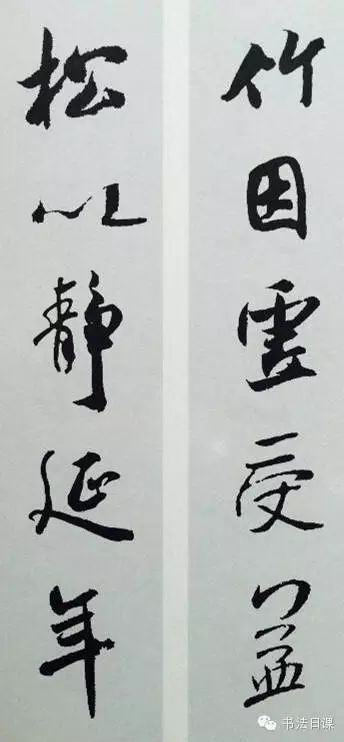 竹因虚受益
松以静延年
书法日课